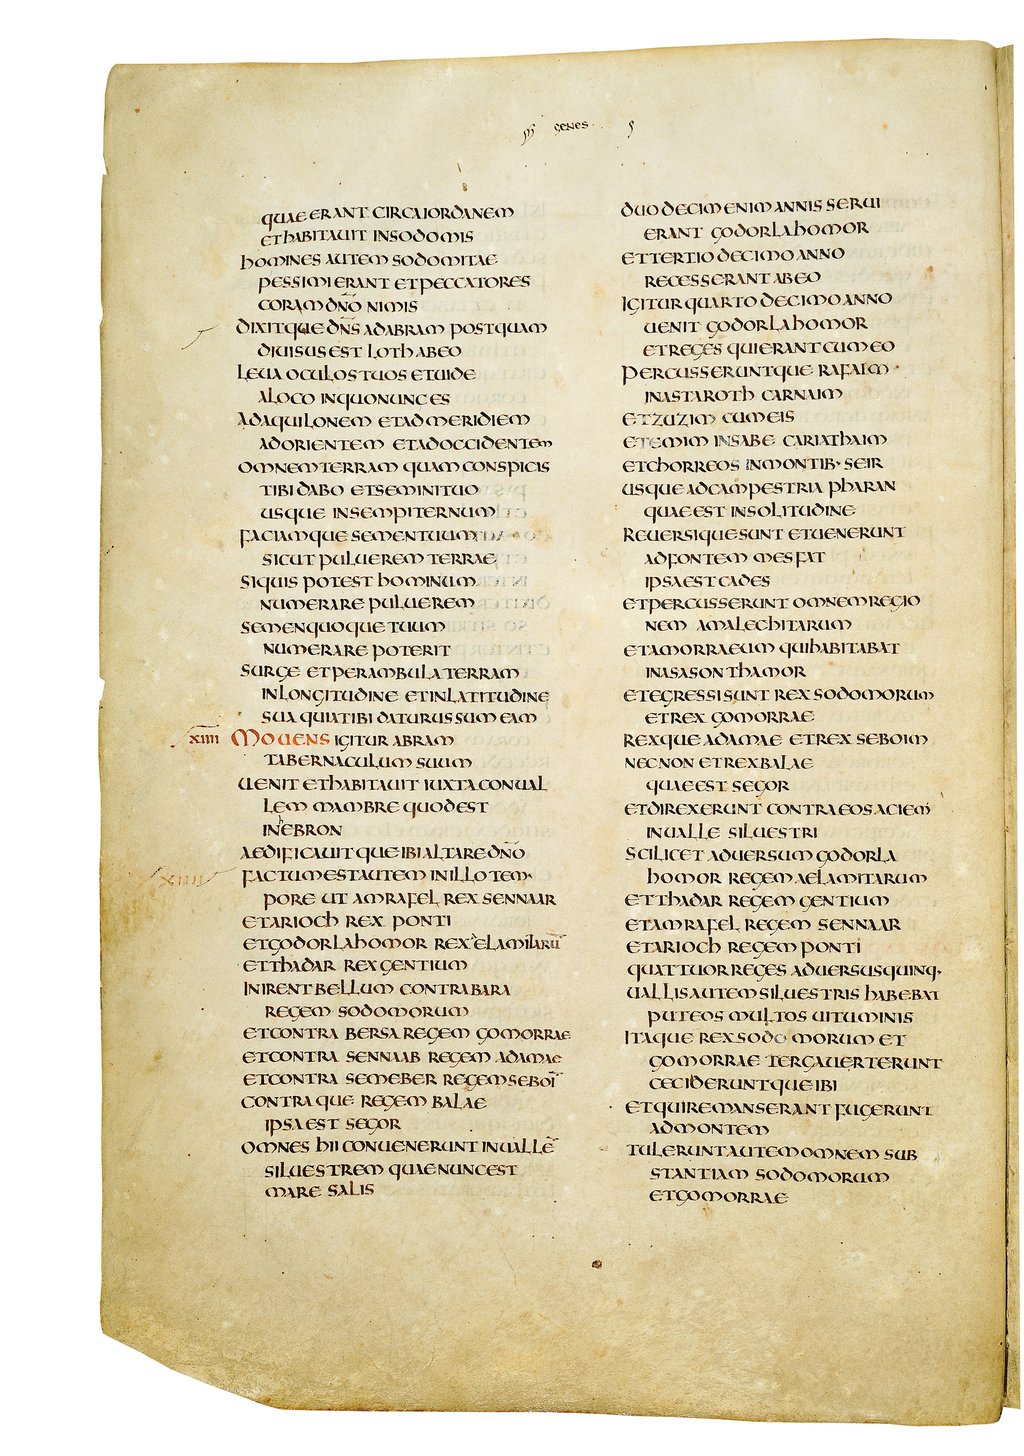 GENES
QUAE ERANT CIRCA IORDANEM
ET HABITAUIT IN SODOMIS
HOMINES AUTEM SODOMITAE
PESSIMI ERANT ET PECCATORES
CORAM DN̄O NIMIS
DIXITQUE DN̄S AD ABRAM POSTQUAM
DIUISUS EST LOTH AB EO
LEUA OCULOS TUOS ET UIDE
A LOCO IN QUO NUNC ES
AD AQUILONEM ET AD MERIDIEM
AD ORIENTEM ET AD OCCIDENTEM
OMNEM TERRAM QUAM CONSPICIS
TIBI DABO ET SEMINI TUO
USQUE IN SEMPITERNUM
FACIAMQUE SEMEN TUUM
SICUT PULUEREM TERRAE
SI QUIS POTEST HOMINUM
NUMERARE PULUEREM
SEMEN QUOQUE TUUM
NUMERARE POTERIT
SURGE ET PERAMBULA TERRAM
IN LONGITUDINE ET IN LATITUDINE
SUA QUIA TIBI DATURUS SUM EAM
XIIII MOUENS IGITUR ABRAM
TABERNACULUM SUUM
UENIT ET HABITAUIT IUXTA CONUAL
LEM MAMBRE QUOD EST
IN hEBRON
AEDIFICAUITQUE IBI ALTARE DN̄O
XIIII FACTUM EST AUTEM IN ILLO TEM·
PORE UT AMRAFEL REX SENNAAR
ET ARIOCH REX PONTI
ET GODORLAHOMOR REX AELAMITARŪ
ET THADAR REX GENTIUM
INIRENT BELLUM CONTRA BARA
REGEM SODOMORUM
ET CONTRA BERSA REGEM GOMORRAE
ET CONTRA SENNAAB REGEM ADAMAE
ET CONTRA SEMEBER REGEM SEBOĪ
CONTRAQUE REGEM BALAE
IPSA EST SEGOR
OMNES HII CONUENERUNT IN UALLĒ
SILUESTREM QUAE NUNC EST
MARE SALIS
DUODECIM ENIM ANNIS SERUI
ERANT GODORLAHOMOR
ET TERTIO DECIMO ANNO
RECESSERANT AB EO
IGITUR QUARTO DECIMO ANNO
UENIT GODORLAHOMOR
ET REGES QUI ERANT CUM EO
PERCUSSERUNTQUE RAFAIM
IN ASTAROTH CARNAIM
ET ZUZIM CUM EIS
ET EMIM IN SABE CARIATHAIM
ET CHORREOS IN MONTIB· SEIR
USQUE AD CAMPESTRIA PHARAN
QUAE EST IN SOLITUDINE
REUERSIQUE SUNT ET UENERUNT
AD FONTEM MESFAT
IPSA EST CADES
ET PERCUSSERUNT OMNEM REGIO
NEM AMALECHITARUM
ET AMORRAEUM QUI HABITABAT
IN ASASONTHAMOR
ET EGRESSI SUNT REX SODOMORUM
ET REX GOMORRAE
REXQUE ADAMAE ET REX SEBOIM
NEC NON ET REX BALAE
QUAE EST SEGOR
ET DIREXERUNT CONTRA EOS ACIEM
IN UALLE SILUESTRI
SCILICET ADUERSUM GODORLA
HOMOR REGEM AELAMITARUM
ET THADAR REGEM GENTIUM
ET AMRAFEL REGEM SENNAAR
ET ARIOCH REGEM PONTI
QUATTUOR REGES ADUERSUS QUINQ·
UALLIS AUTEM SILUESTRIS HABEBAT
PUTEOS MULTOS UITUMINIS
ITAQUE REX SODOMORUM ET
GOMORRAE TERGA UERTERUNT
CECIDERUNTQUE IBI
ET QUI REMANSERANT FUGERUNT
AD MONTEM
TULERUNT AUTEM OMNEM SUB
STANTIAM SODOMORUM
ET GOMORRAE